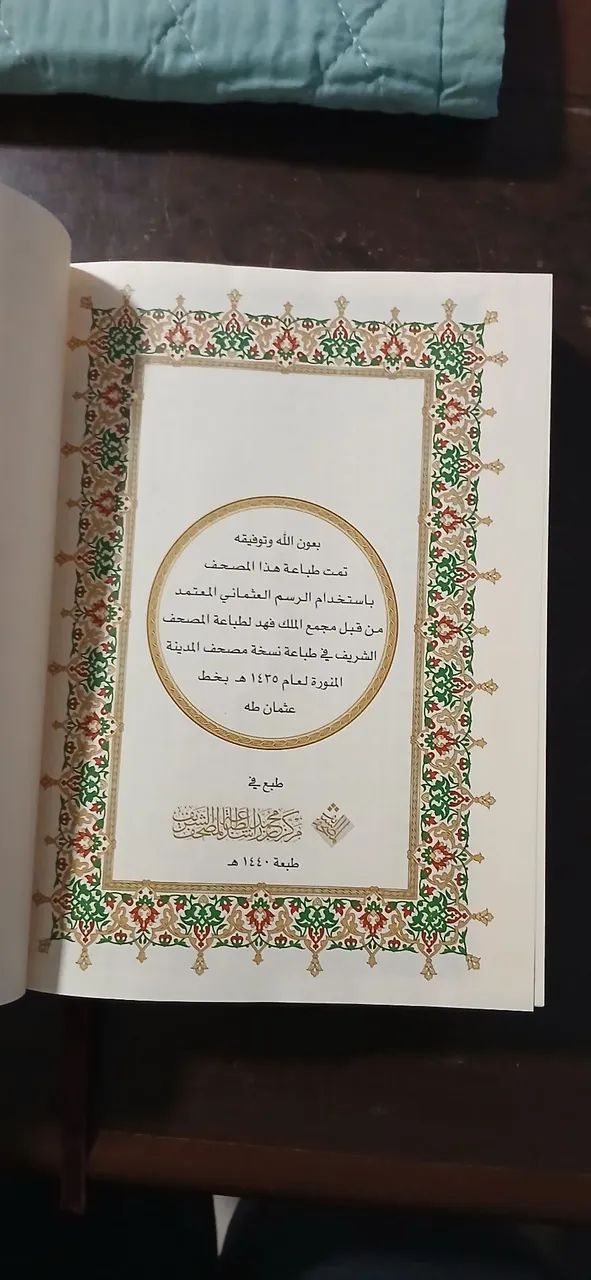 بعون الله وتوفيقه
تمت طباعة هذا المصحف
باستخدام الرسم العثماني المعتمد
من قبل مجمع الملك فهد لطباعة المصحف
الشريف في طباعة نسخة مصحف المدينة
المنورة لعام ١٤٣٥ هـ بخط
عثمان طه
طبع في
مركز محمد بن راشد لطباعة المصحف الشريف
طبعة ١٤٤٠ هـ